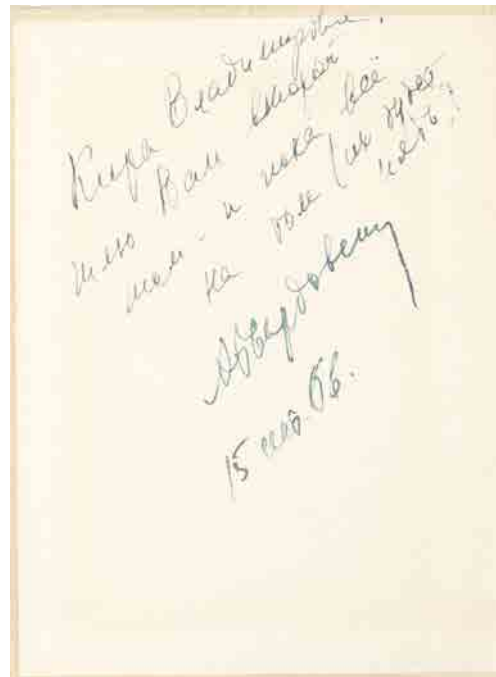 Кира Владимировна,
шлю Вам второй
том - и пока всё
на том (их будет
пять!
АТвардовский
15 сент. 66.